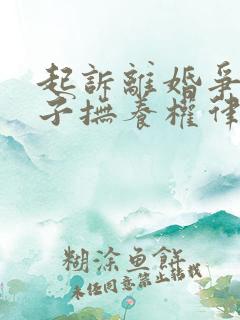 起訴離婚爭
子撫養權律
糊涂鱼餅
未任同意禁止轉載